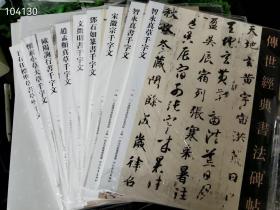 104130
傳世經典書法碑帖
智永真草千字文
智永真書千字文
宋徽宗千字文
鄧石如篆書千字文
文徵明書千字文
趙孟頫真草千字文
歐陽詢行書千字文
懷素小草大草千字文
天地玄黃宇宙洪荒日月
盈昃辰宿列張寒來暑往
秋收冬藏閏餘成歲律呂